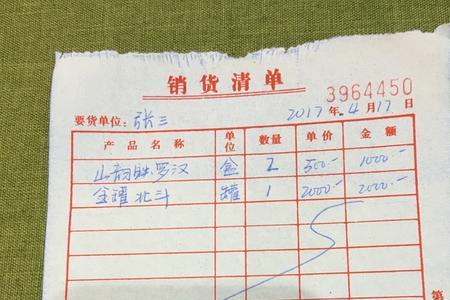 销货清单
3964450
要货单位：张三 2017年4月17日
产品名称 单位 数量 单价 金额
山韵胜.罗汉 盒 2 500.- 1000.-
金罐北斗 罐 1 2000.- 2000.-
第